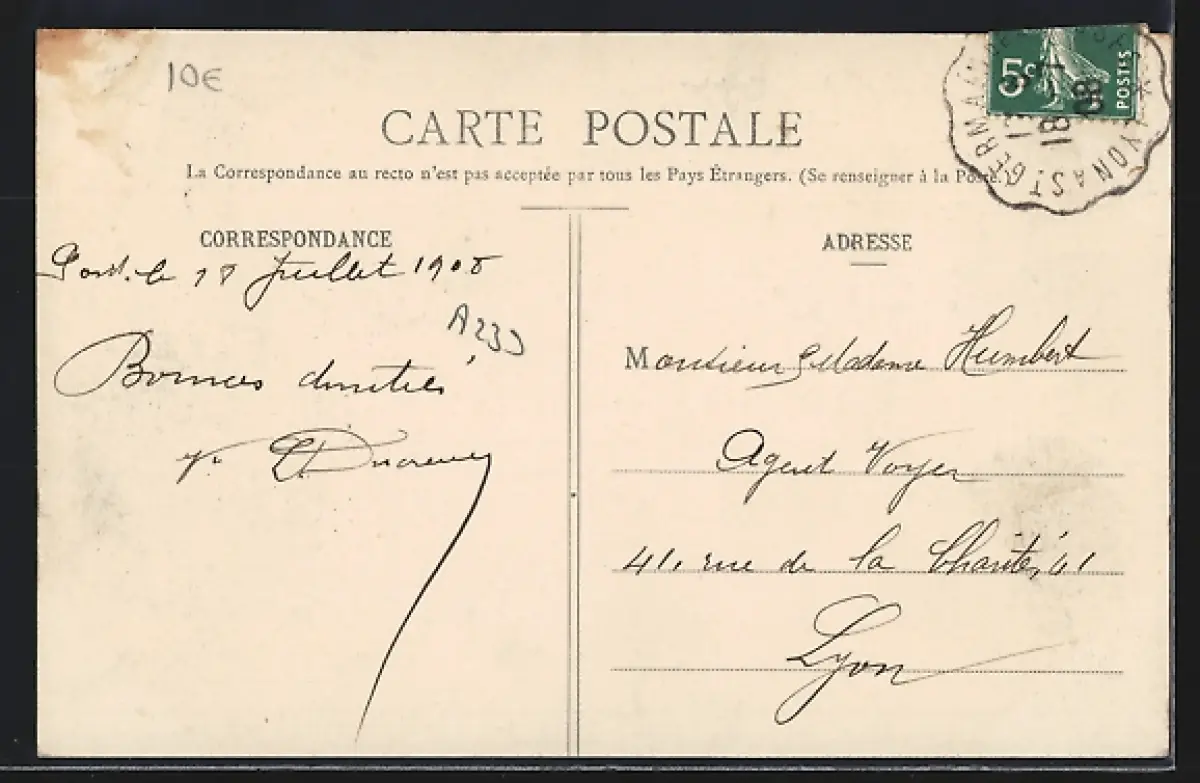 10€
5c
POSTES
13
18-7
08
LYON A ST. GERMA
CARTE POSTALE
La Correspondance au recto n'est pas acceptée par tous les Pays Étrangers. (Se renseigner à la Poste.)
CORRESPONDANCE
le 18 Juillet 1908
A233
Bonnes amitiés
ADRESSE
Monsieur & Madame Humbert
Agent Voyer
41, rue de la Charité, 41
Lyon